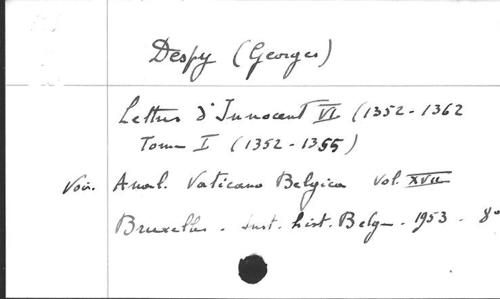 Despy (Georges)
Lettres d'Innocent VI (1352-1362
Tome I (1352-1355)
Voir. Anal. Vaticano Belgica Vol. XVII
Bruxelles - Inst. hist. Belge - 1953 - 8°